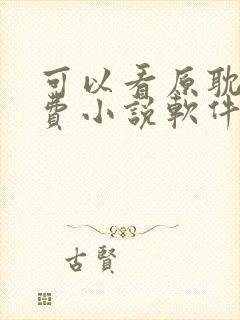 可以看原耽
費小說軟件
古賢